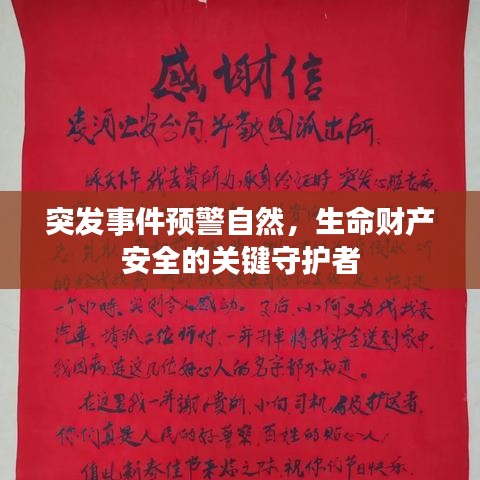 感谢信
凌河公安分局并敬图派出所:
昨天下午我去贵所办取身份证时,突发心脏老病,
突发事件预警自然,生命财产
安全的关键守护者
一个小时。实则令人感动。又后,小何又为我找来
汽车,请派二位师付,一并升车将我安全送到家中,
我因病,连这几位好心人的名字都不知道。
在这里我一并谢谢贵所,小向司机及护送者,
你们真是人民的好警察,百姓的贴心人!
值此新春佳节来临之际,祝你们节日快乐.